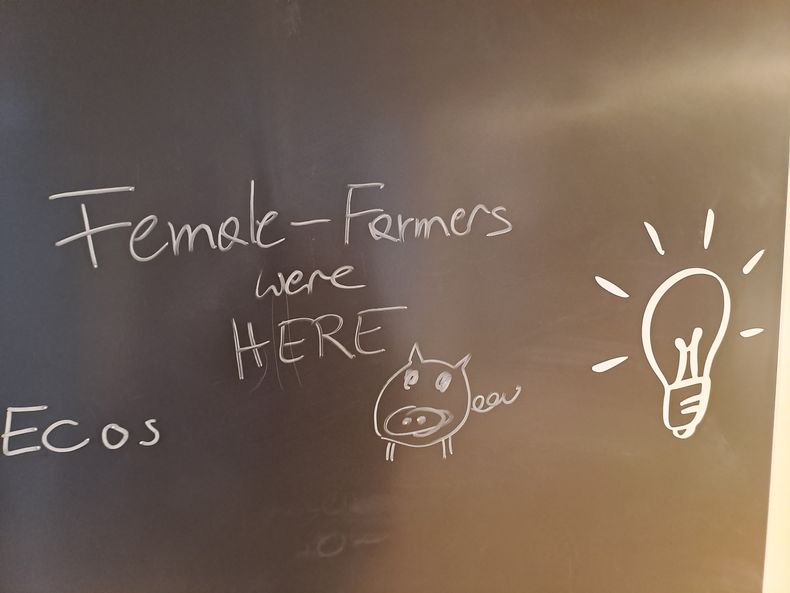 Female-Farmers
were
HERE
ECos